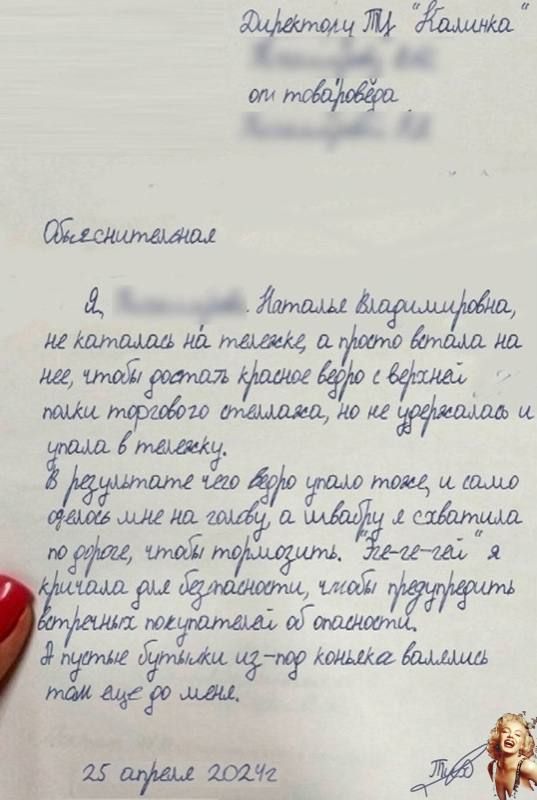 Директору ТЦ "Калинка"
от товароведа
Объяснительная
Я, Наталья Владимировна,
не каталась на тележке, а просто встала на
нее, чтобы достать красное ведро с верхней
полки торгового стеллажа, но не удержалась и
упала в тележку.
В результате чего ведро упало тоже, и само
оделось мне на голову, а швабру я схватила
по дороге, чтобы тормозить. "Эге-ге-гей" я
кричала для безпасности, чтобы предупредить
встречных покупателей об опасности.
А пустые бутылки из-под коньяка валялись
там еще до меня.
25 апреля 2024г